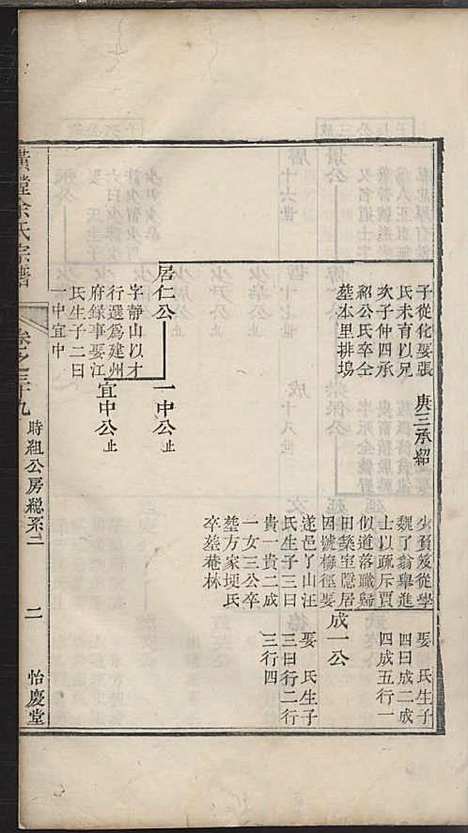 子從化娶張
氏未育以兄
次子仲四承
紹公氏卒仝
塟本里排塢
庚三承紹
少負笈從學
魏了翁舉進
士以疏斥賈
似道落職歸
田築室隱居
因號梅徑娶
遂邑了山汪
氏生子三曰
貴一貴二成
一女三公卒
塟方家埂氏
卒塟庵林
娶 氏生子
四曰成二成
四成五行一
成一公
娶 氏生子
三曰行二行
三行四
居仁公
字靜山以才
行選爲建州
府錄事娶江
氏生子二曰
一中宜中
一中公止
宜中公止
余氏宗譜
卷之三十九
時組公房總系二
二
怡慶堂